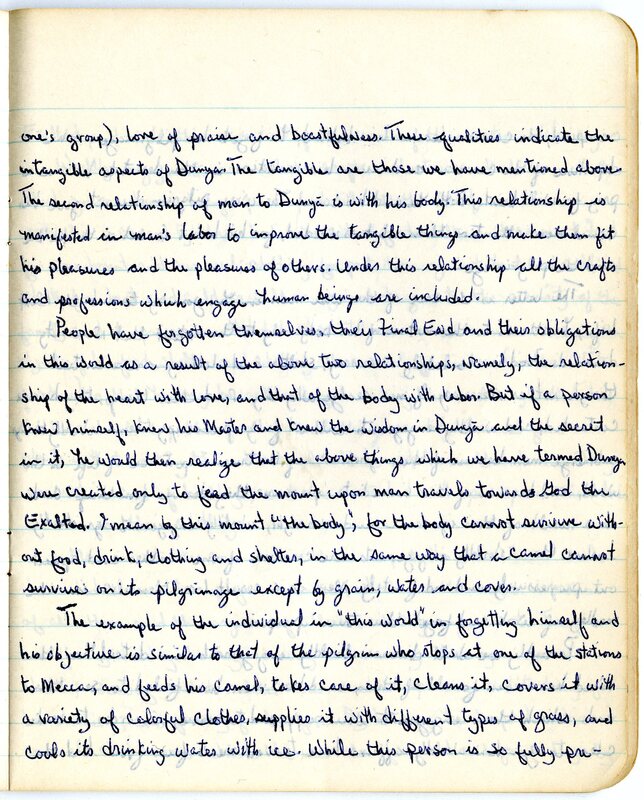 one's group), love of praise and boastfulness. These qualities indicate the
intangible aspects of Dunya. The tangible are those we have mentioned above.
The second relationship of man to Dunyā is with his body. This relationship is
manifested in man's labor to improve the tangible things and make them fit
his pleasures and the pleasures of others. Under this relationship all the crafts
and professions which engage human beings are included.
People have forgotten themselves, their Final End and their obligations
in this world as a result of the above two relationships, namely, the relation-
ship of the heart with love, and that of the body with labor. But if a person
knew himself, knew his Master and knew the wisdom in Dunyā and the secret
in it, he would then realize that the above things which we have termed Dunya
were created only to feed the mount upon man travels towards God the
Exalted. I mean by this mount "the body", for the body cannot survive with-
out food, drink, clothing and shelter, in the same way that a camel cannot
survive on its pilgrimage except by grain, water and cover.
The example of the individual in "this world" in forgetting himself and
his objective is similar to that of the pilgrim who stops at one of the stations
to Mecca, and feeds his camel, takes care of it, cleans it, covers it with
a variety of colorful clothes, supplies it with different types of grass, and
cools its drinking water with ice. While this person is so fully pre-